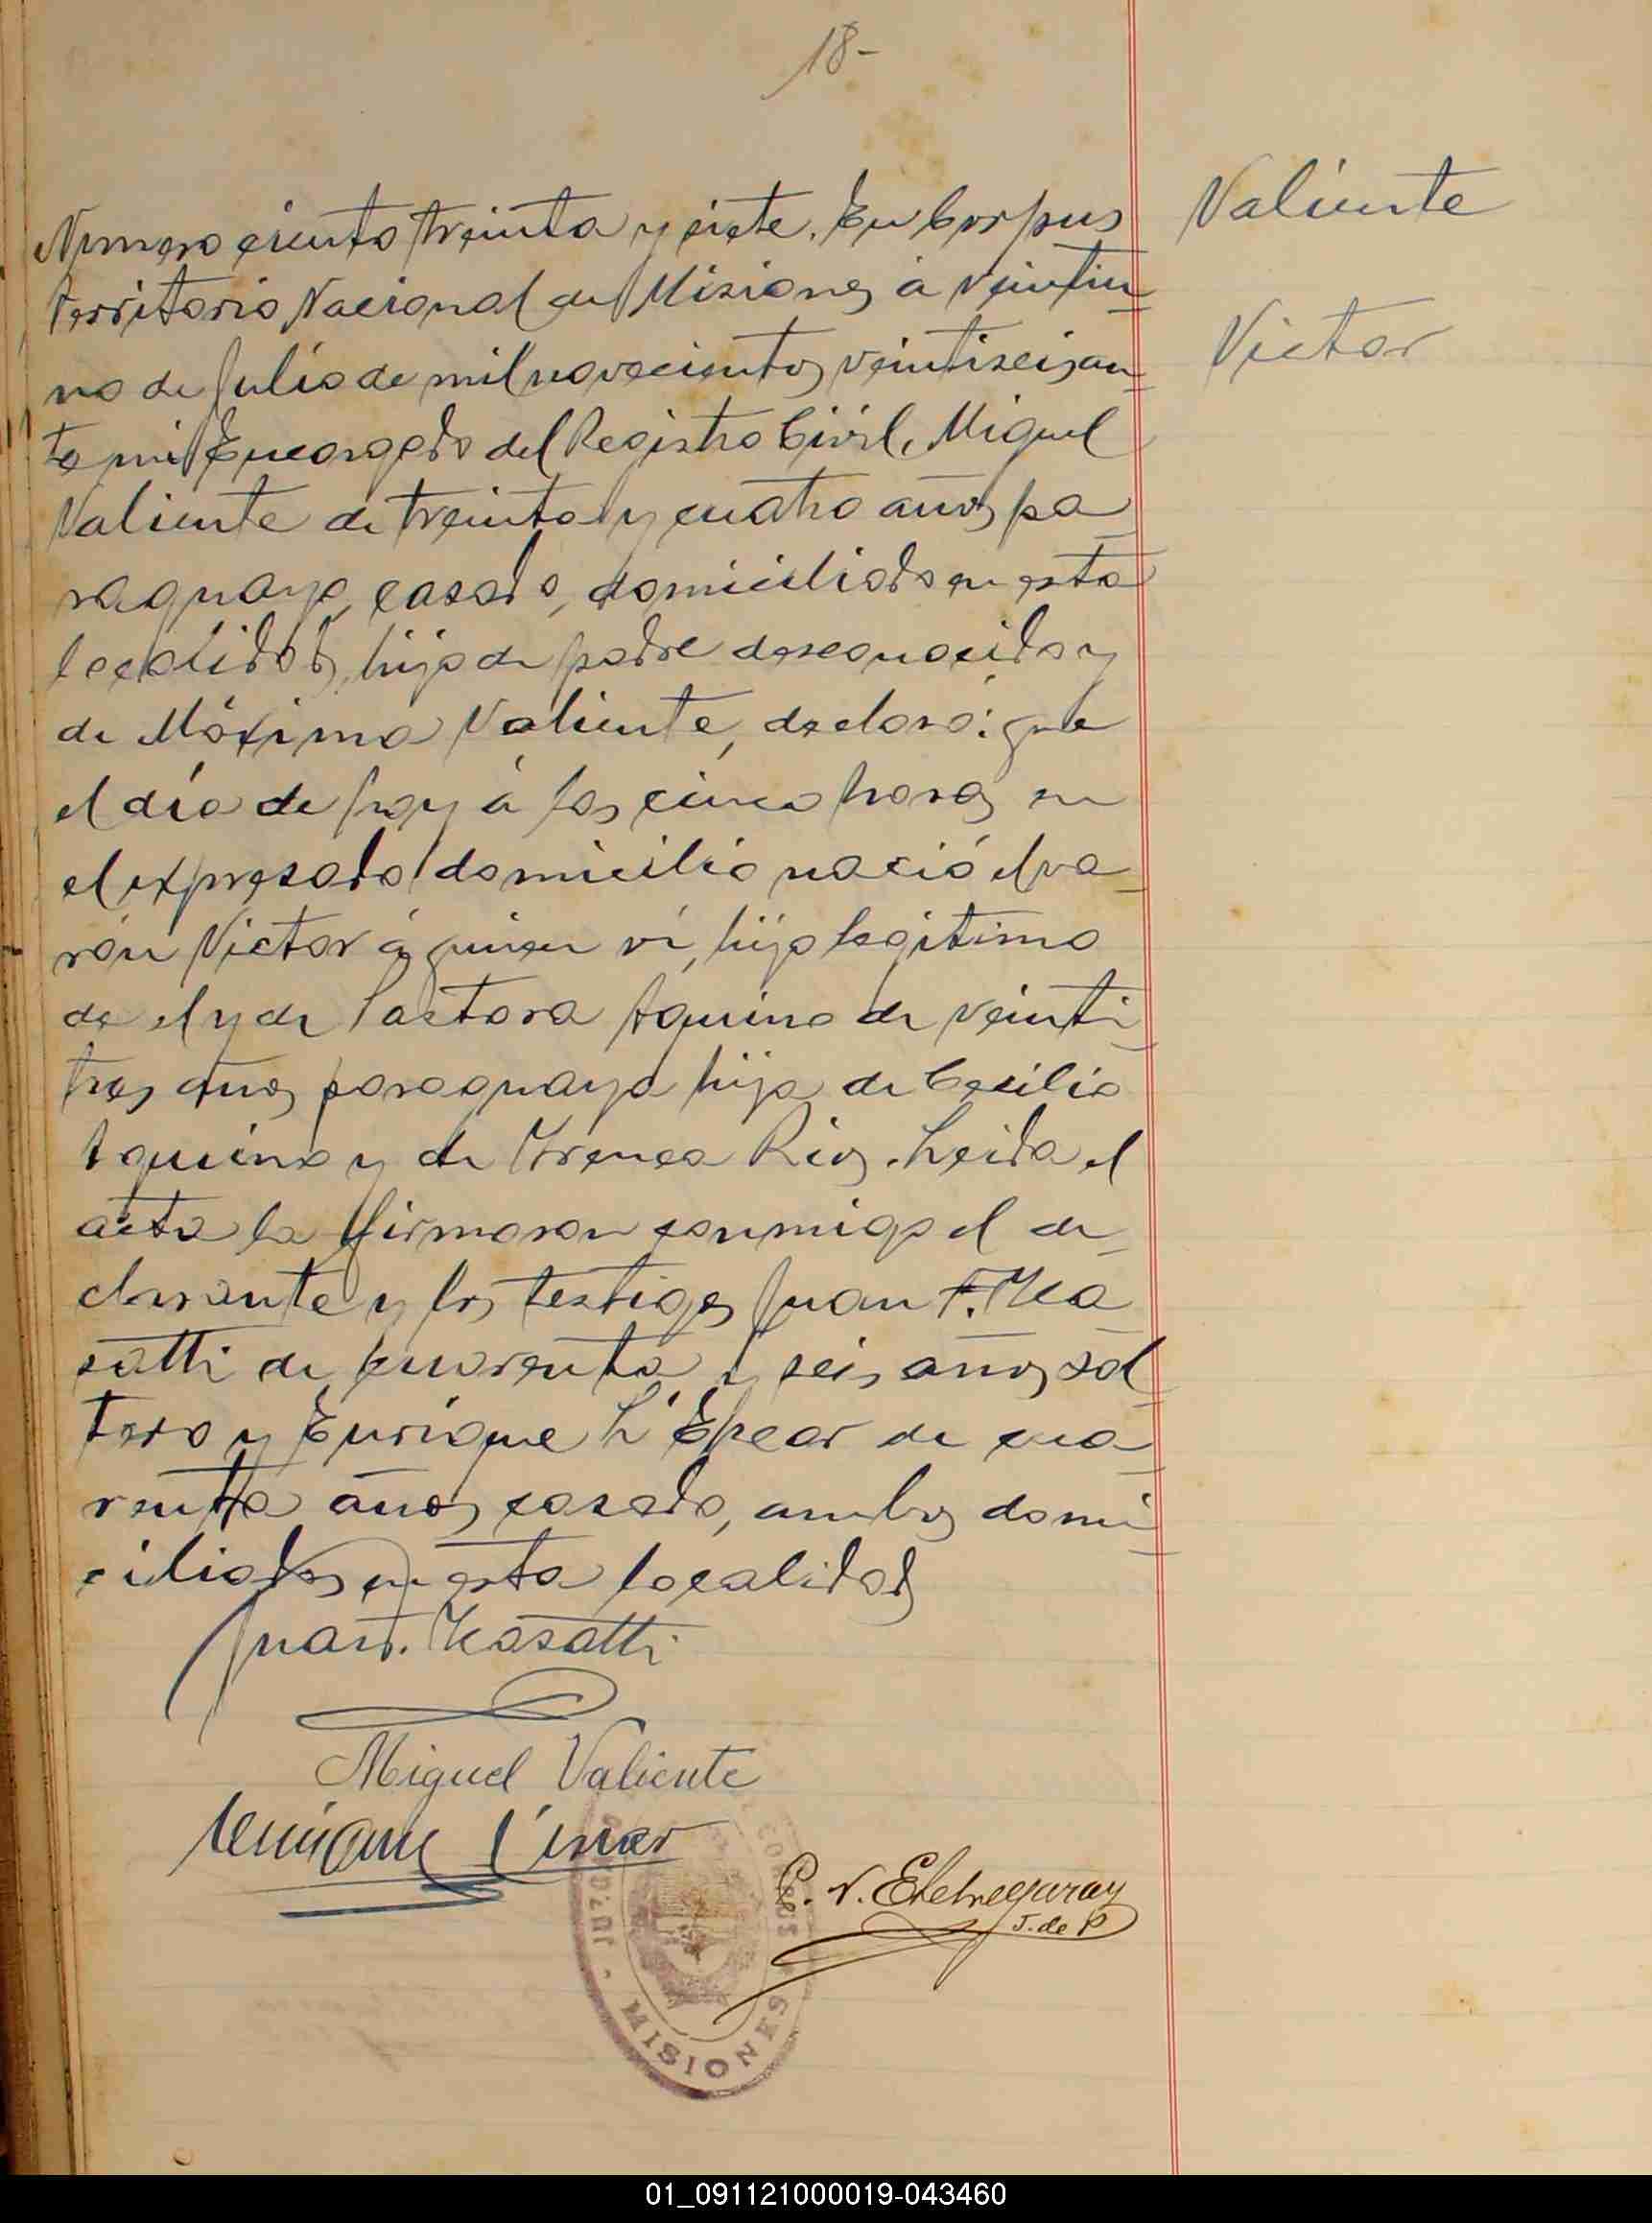 18-
Valiente
Victor
Numero ciento treinta y siete. En Corpus
territorio Nacional de Misiones à veintiu-
no de Julio de mil novecientos veintiseis an-
te mi Encargado del Registro Civil, Miguel
Valiente de treinta y cuatro años pa-
raguayo, casado, domiciliado en esta
localidad, hijo de padre desconocido y
de Máxima Valiente, declaró: que
el día de hoy á las cinco horas en
el expresado domicilio nació el va-
rón Victor á quien ví, hijo legitimo
de el y de Pastora Aquino de veinti-
tres años paraguaya hija de Cecilio
Aquino y de Irenea Rios. Leida el
acta la firmaron conmigo el de-
clarante y los testigos Juan F.
satti de cuarenta y seis años sol-
tero y Enrique de cua-
renta años casado, ambos domi-
ciliados en esta localidad
Juan
Miguel Valiente
J. de P
CORPUS
JUZGADO
- MISIONES
01_091121000019-043460